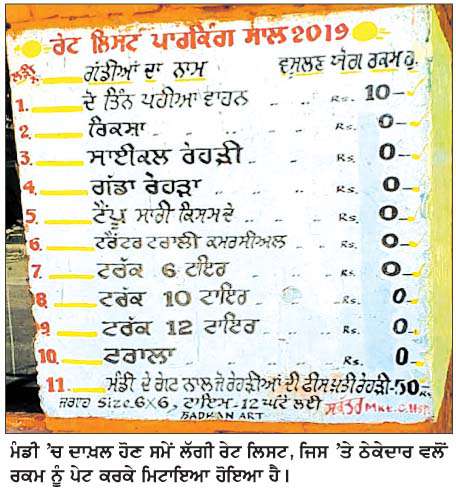 ਰੇਟ ਲਿਸਟ ਪਾਰਕਿੰਗ ਸਾਲ 2019
ਲੜੀ ਗੱਡੀਆਂ ਦਾ ਨਾਮ ਵਸੂਲਣ ਯੋਗ ਰਕਮ ਰੁ.
1. ਦੋ ਤਿੰਨ ਪਹੀਆ ਵਾਹਨ .. Rs. 10-
2. ਰਿਕਸ਼ਾ .. .. .. Rs. 0-
3. ਸਾਈਕਲ ਰੇਹੜੀ .. .. Rs. 0-
4. ਗੱਡਾ ਰੇਹੜਾ .. .. .. Rs. 0-
5. ਟੈਂਪੂ ਸਾਰੀ ਕਿਸਮ ਦੇ .. .. Rs. 0-
6. ਟਰੈਕਟਰ ਟਰਾਲੀ ਕਮਰਸੀਅਲ .. Rs. 0-
7. ਟਰੱਕ 6 ਟਾਇਰ .. .. Rs. 0-
8. ਟਰੱਕ 10 ਟਾਇਰ .. .. Rs. 0-
9. ਟਰੱਕ 12 ਟਾਇਰ .. .. Rs. 0-
10. ਟਰਾਲਾ .. .. .. Rs. 0-
11. ਮੰਡੀ ਦੇ ਗੇਟ ਨਾਲ ਜੋ ਰੇਹੜੀਆਂ ਦੀ ਫੀਸ ਪ੍ਰਤੀ ਰੇਹੜੀ-50-
ਜਗਾਹ Size.6×6, ਟਾਇਮ-12 ਘੰਟੇ ਲਈ
BADHAN ART
ਮੰਡੀ 'ਚ ਦਾਖ਼ਲ ਹੋਣ ਸਮੇਂ ਲੱਗੀ ਰੇਟ ਲਿਸਟ, ਜਿਸ 'ਤੇ ਠੇਕੇਦਾਰ ਵਲੋਂ
ਰਕਮ ਨੂੰ ਪੇਟ ਕਰਕੇ ਮਿਟਾਇਆ ਹੋਇਆ ਹੈ।